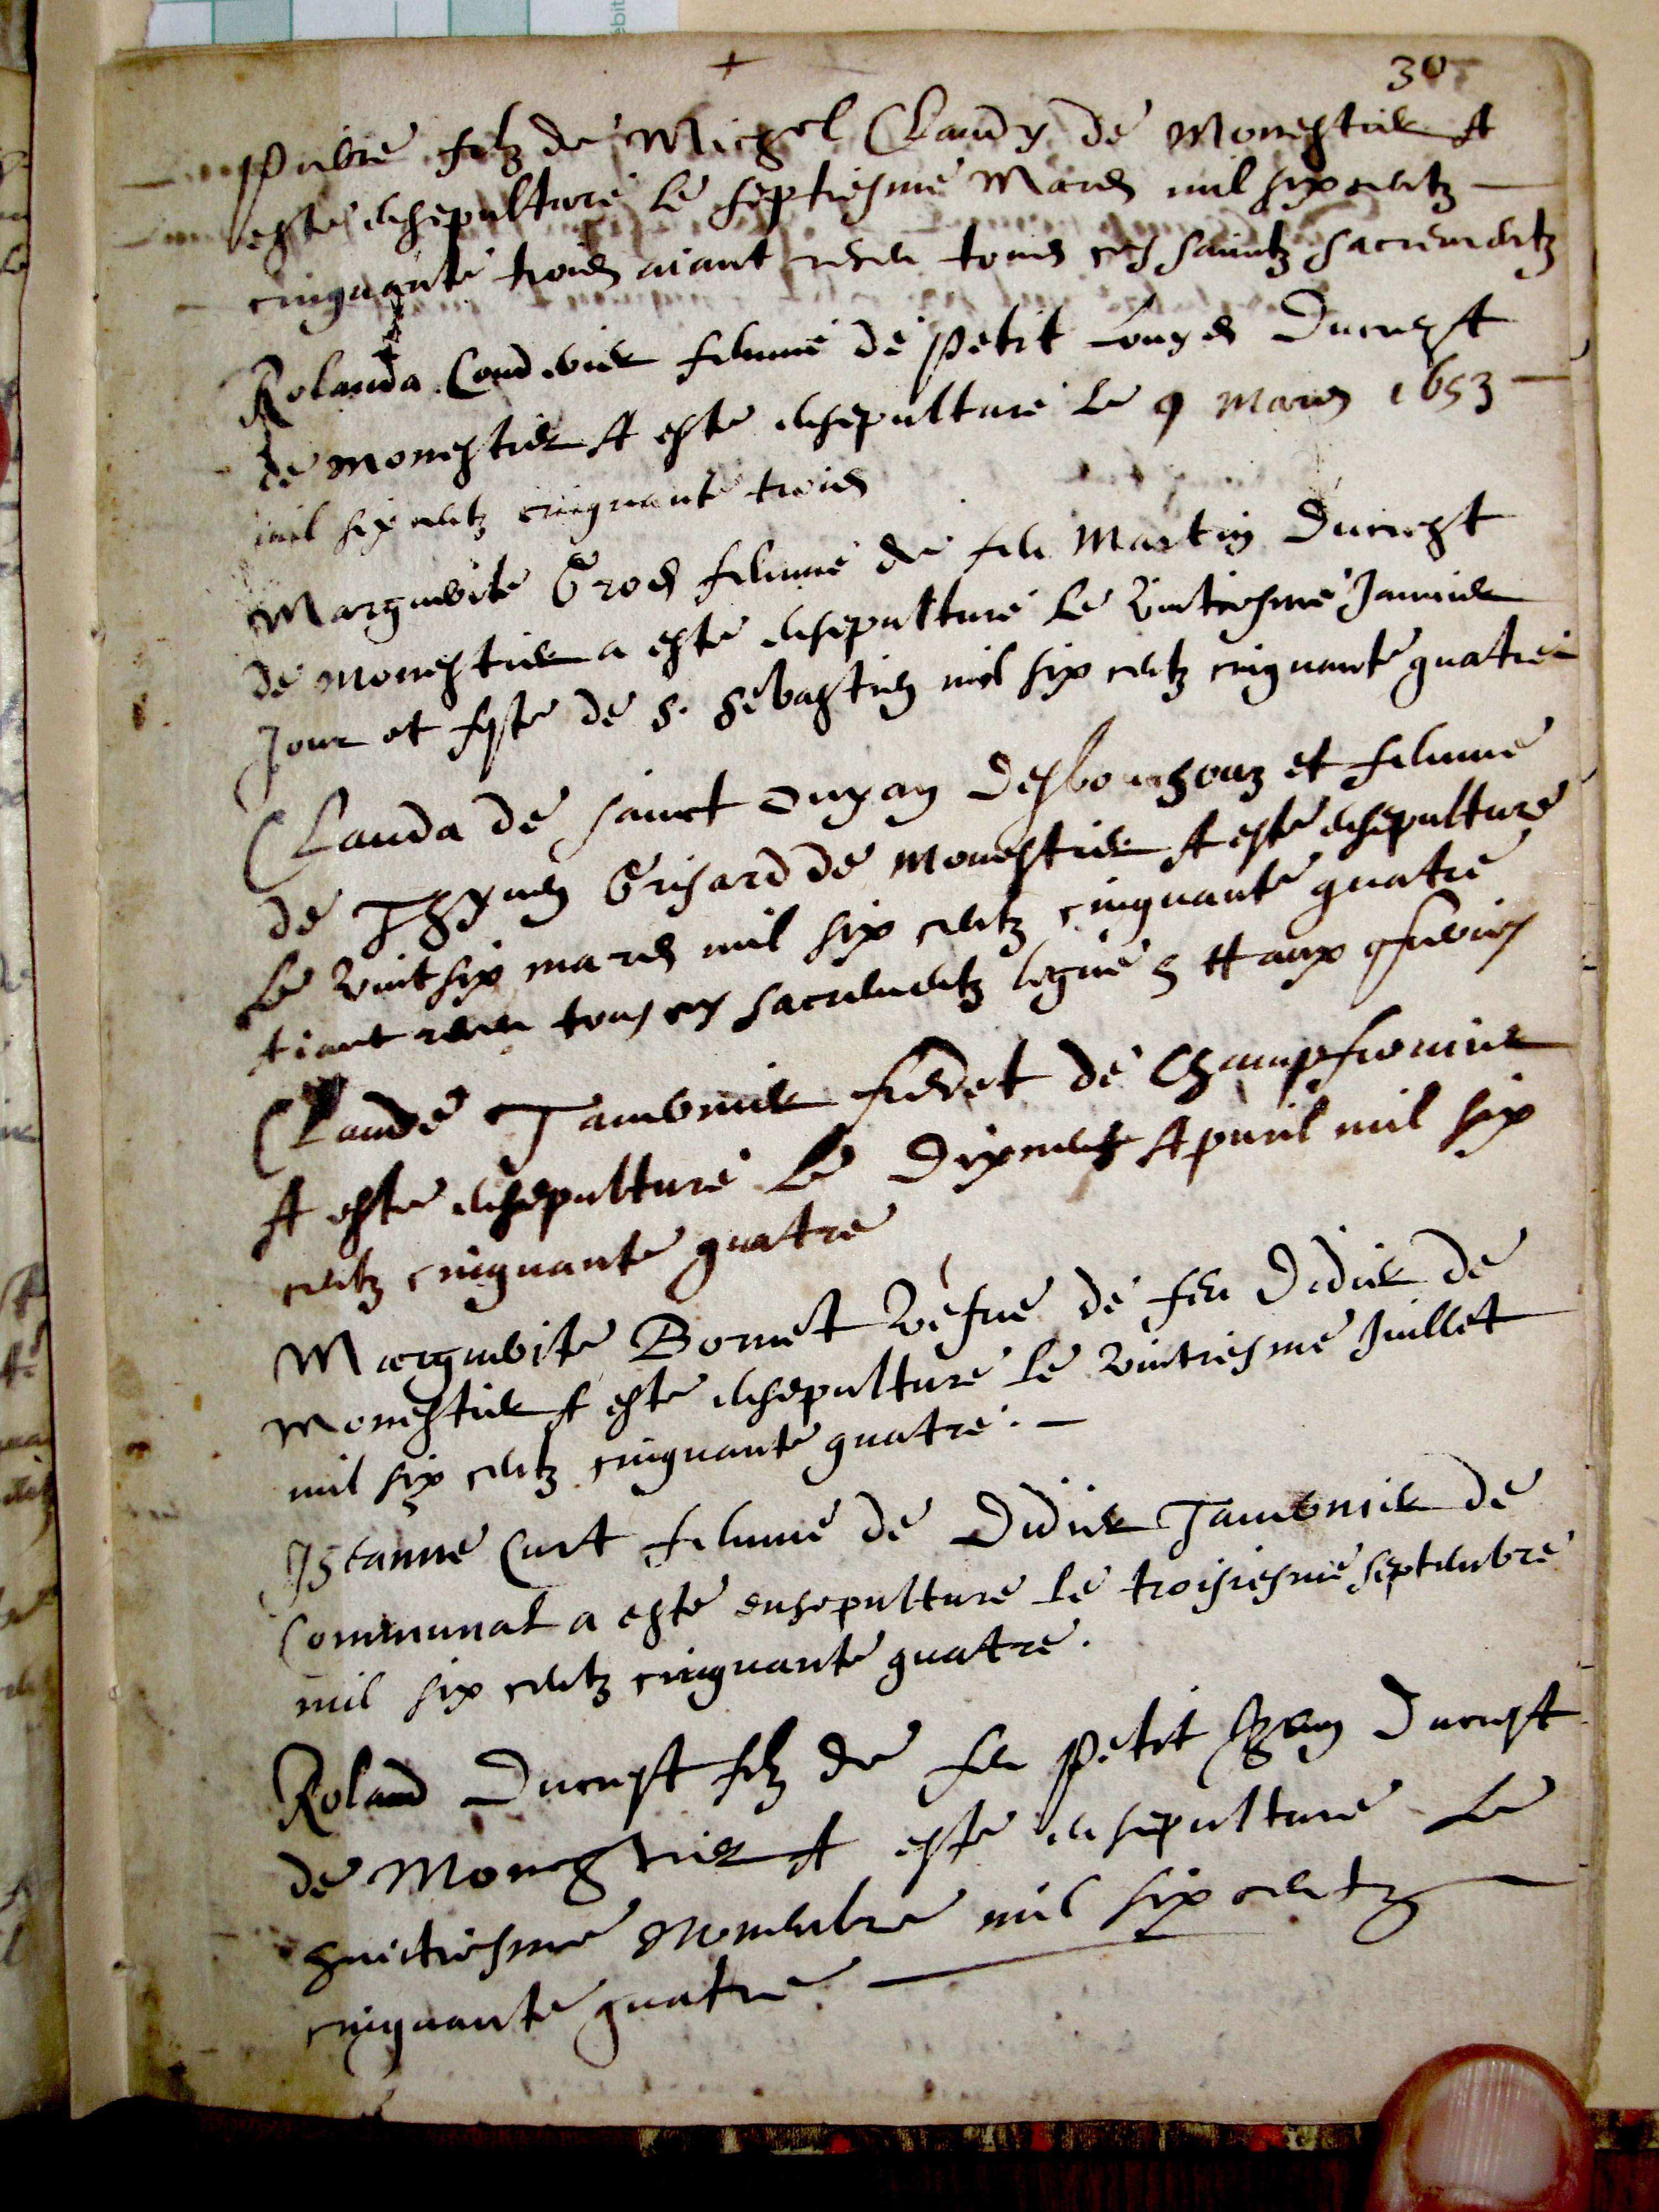 30
Pierre filz de Michel Claudy de Monestier A
este ensepulture le septiesme Mars mil six centz
cinquante trois aiant receu tous ces sainctz sacrementz
Rolanda Condevier femme de petit Louys Ducrest
de Monestier A este ensepulture le 9 Mars 1653
mil six centz cinquante trois
Marguerite Gros femme de feu Martin Ducrest
de Monestier a este ensepulture le vintiesme Januier
Jour et feste de S. Sebastien mil six centz cinquante quatre
Clauda de sainct Oyan Desbouchouz et femme
de Thyuen Grisard de Monestier A este ensepulture
le vint six mars mil six centz cinquante quatre
aiant receu tous ces sacrementz legue 5 tt aux
Claude Tavernier Fieret de Champfromier
A este ensepulture le Dixneuf Apuril mil six
centz cinquante quatre
Marguerite Bornet vefue de feu Didier de
Monestier A este ensepulture le vintiesme Juillet
mil six centz cinquante quatre.
Jehanne Curt femme de Didier Tavernier de
Communal a este ensepulture le troisiesme septembre
mil six centz cinquante quatre.
Roland Ducrest filz de feu petit Jean Ducrest
de Monestier A este ensepulture le
huictiesme Nouembre mil six centz
cinquante quatre